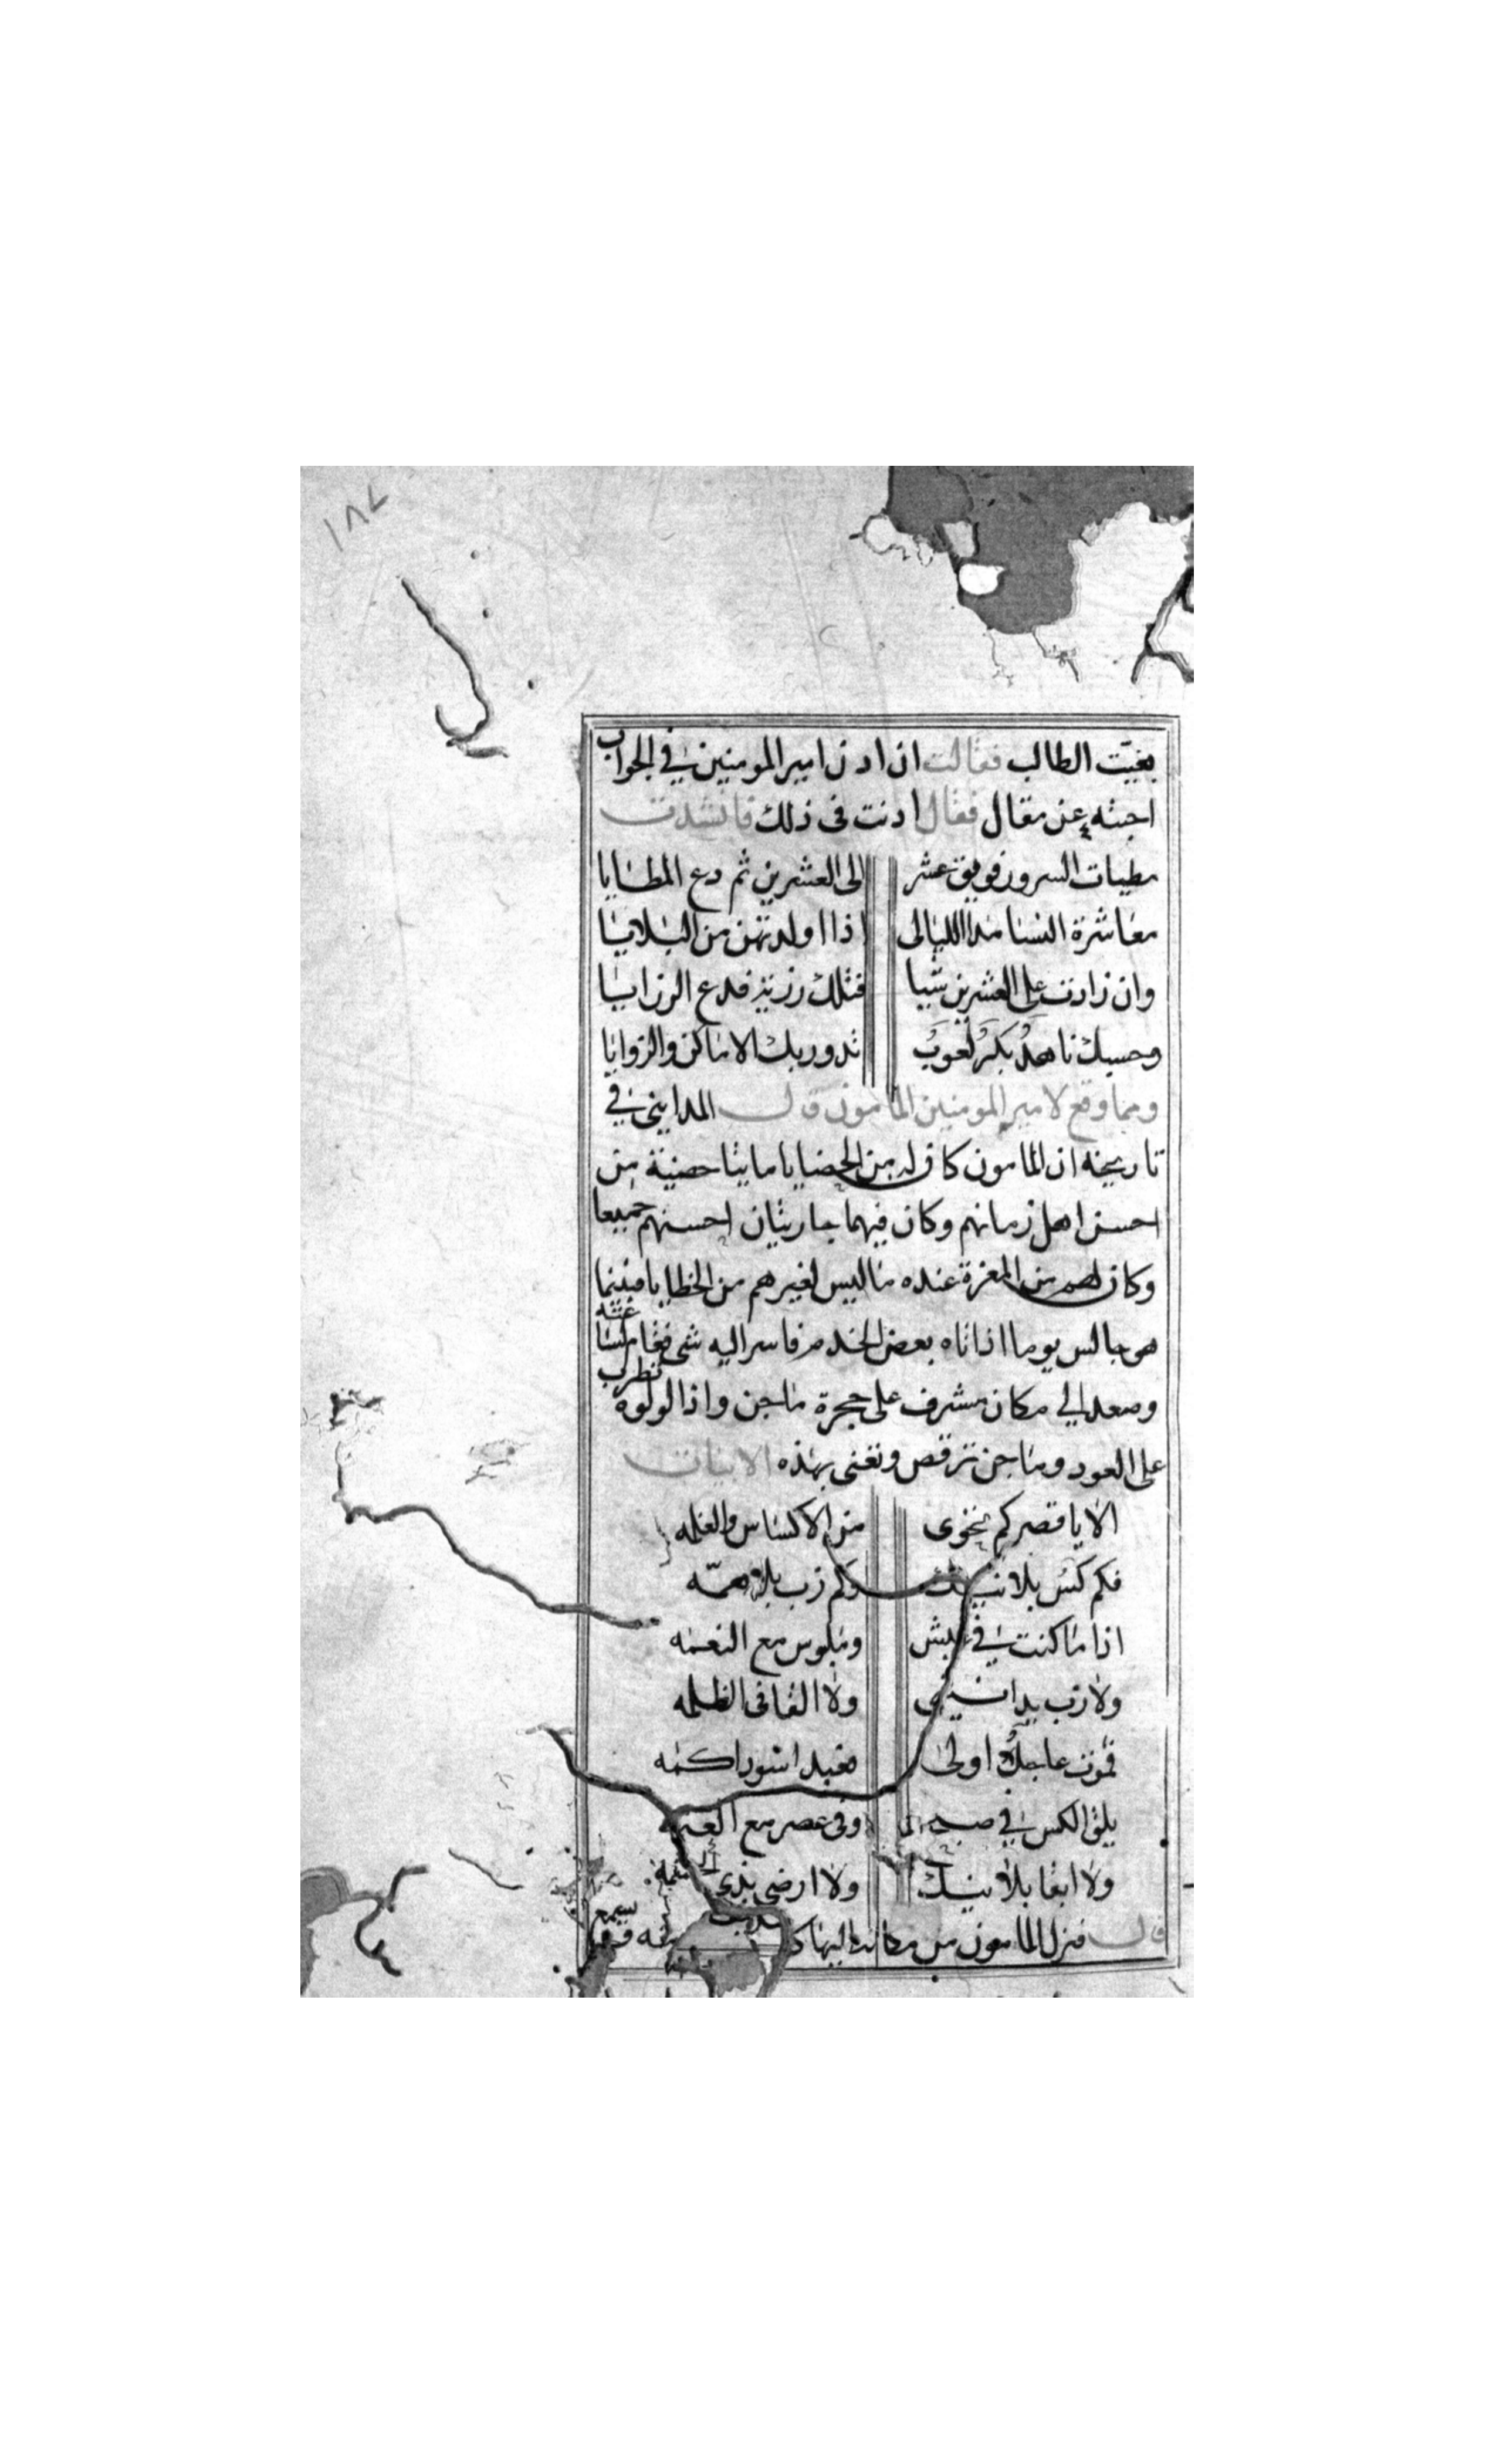 ١٨٧
بغيّت الطالب فقالت ان اذن امير المومنين في الجواب
اجبته عن مقال فقال اذنت فى ذلك فانشدت
مطيات السرور فويق عشر الى العشرين ثم دع المطايا
معاشرة النسا مدا الليالى اذا اولدتهن من البلايا
وان زادت على العشرين شيا فتلك رزية فدع الرزايا
وحسبك ناهدٌ بكرٌ لعوبٌ تدور بك الاماكن والزوايا
ومما وقع لامير المومنين المامون قال المدايني في
تاريخه ان المامون كان له من الحضايا مايتا حضية من
احسن اهل زمانهم وكان فيهما جاريتان احسنهم جميعا
وكان لهم من المعزة عنده ما ليس لغيرهم من الخظايا فبينما
هو جالس يوما اذ اتاه بعض الخدم فاسر اليه شى فقام
وصعد الي مكان مشرف على حجرة ماجن واذا لولوة تضرب
على العود وماجن ترقص وتغنى بهذه الابيات
الا يا قصر كم تحوى من الاكساس والغلمه
فكم كس بلا وكم زب بلا همّه
اذا ما كنت في وملبوس مع النعمه
ولا زب ولا القا فى الظلمه
فموت عاجل اولى
يلقى الكس في وفى عصر مع
ولا ابقا بلا ولا ارضى بذى
قال فنزل المامون من مكانه اليها